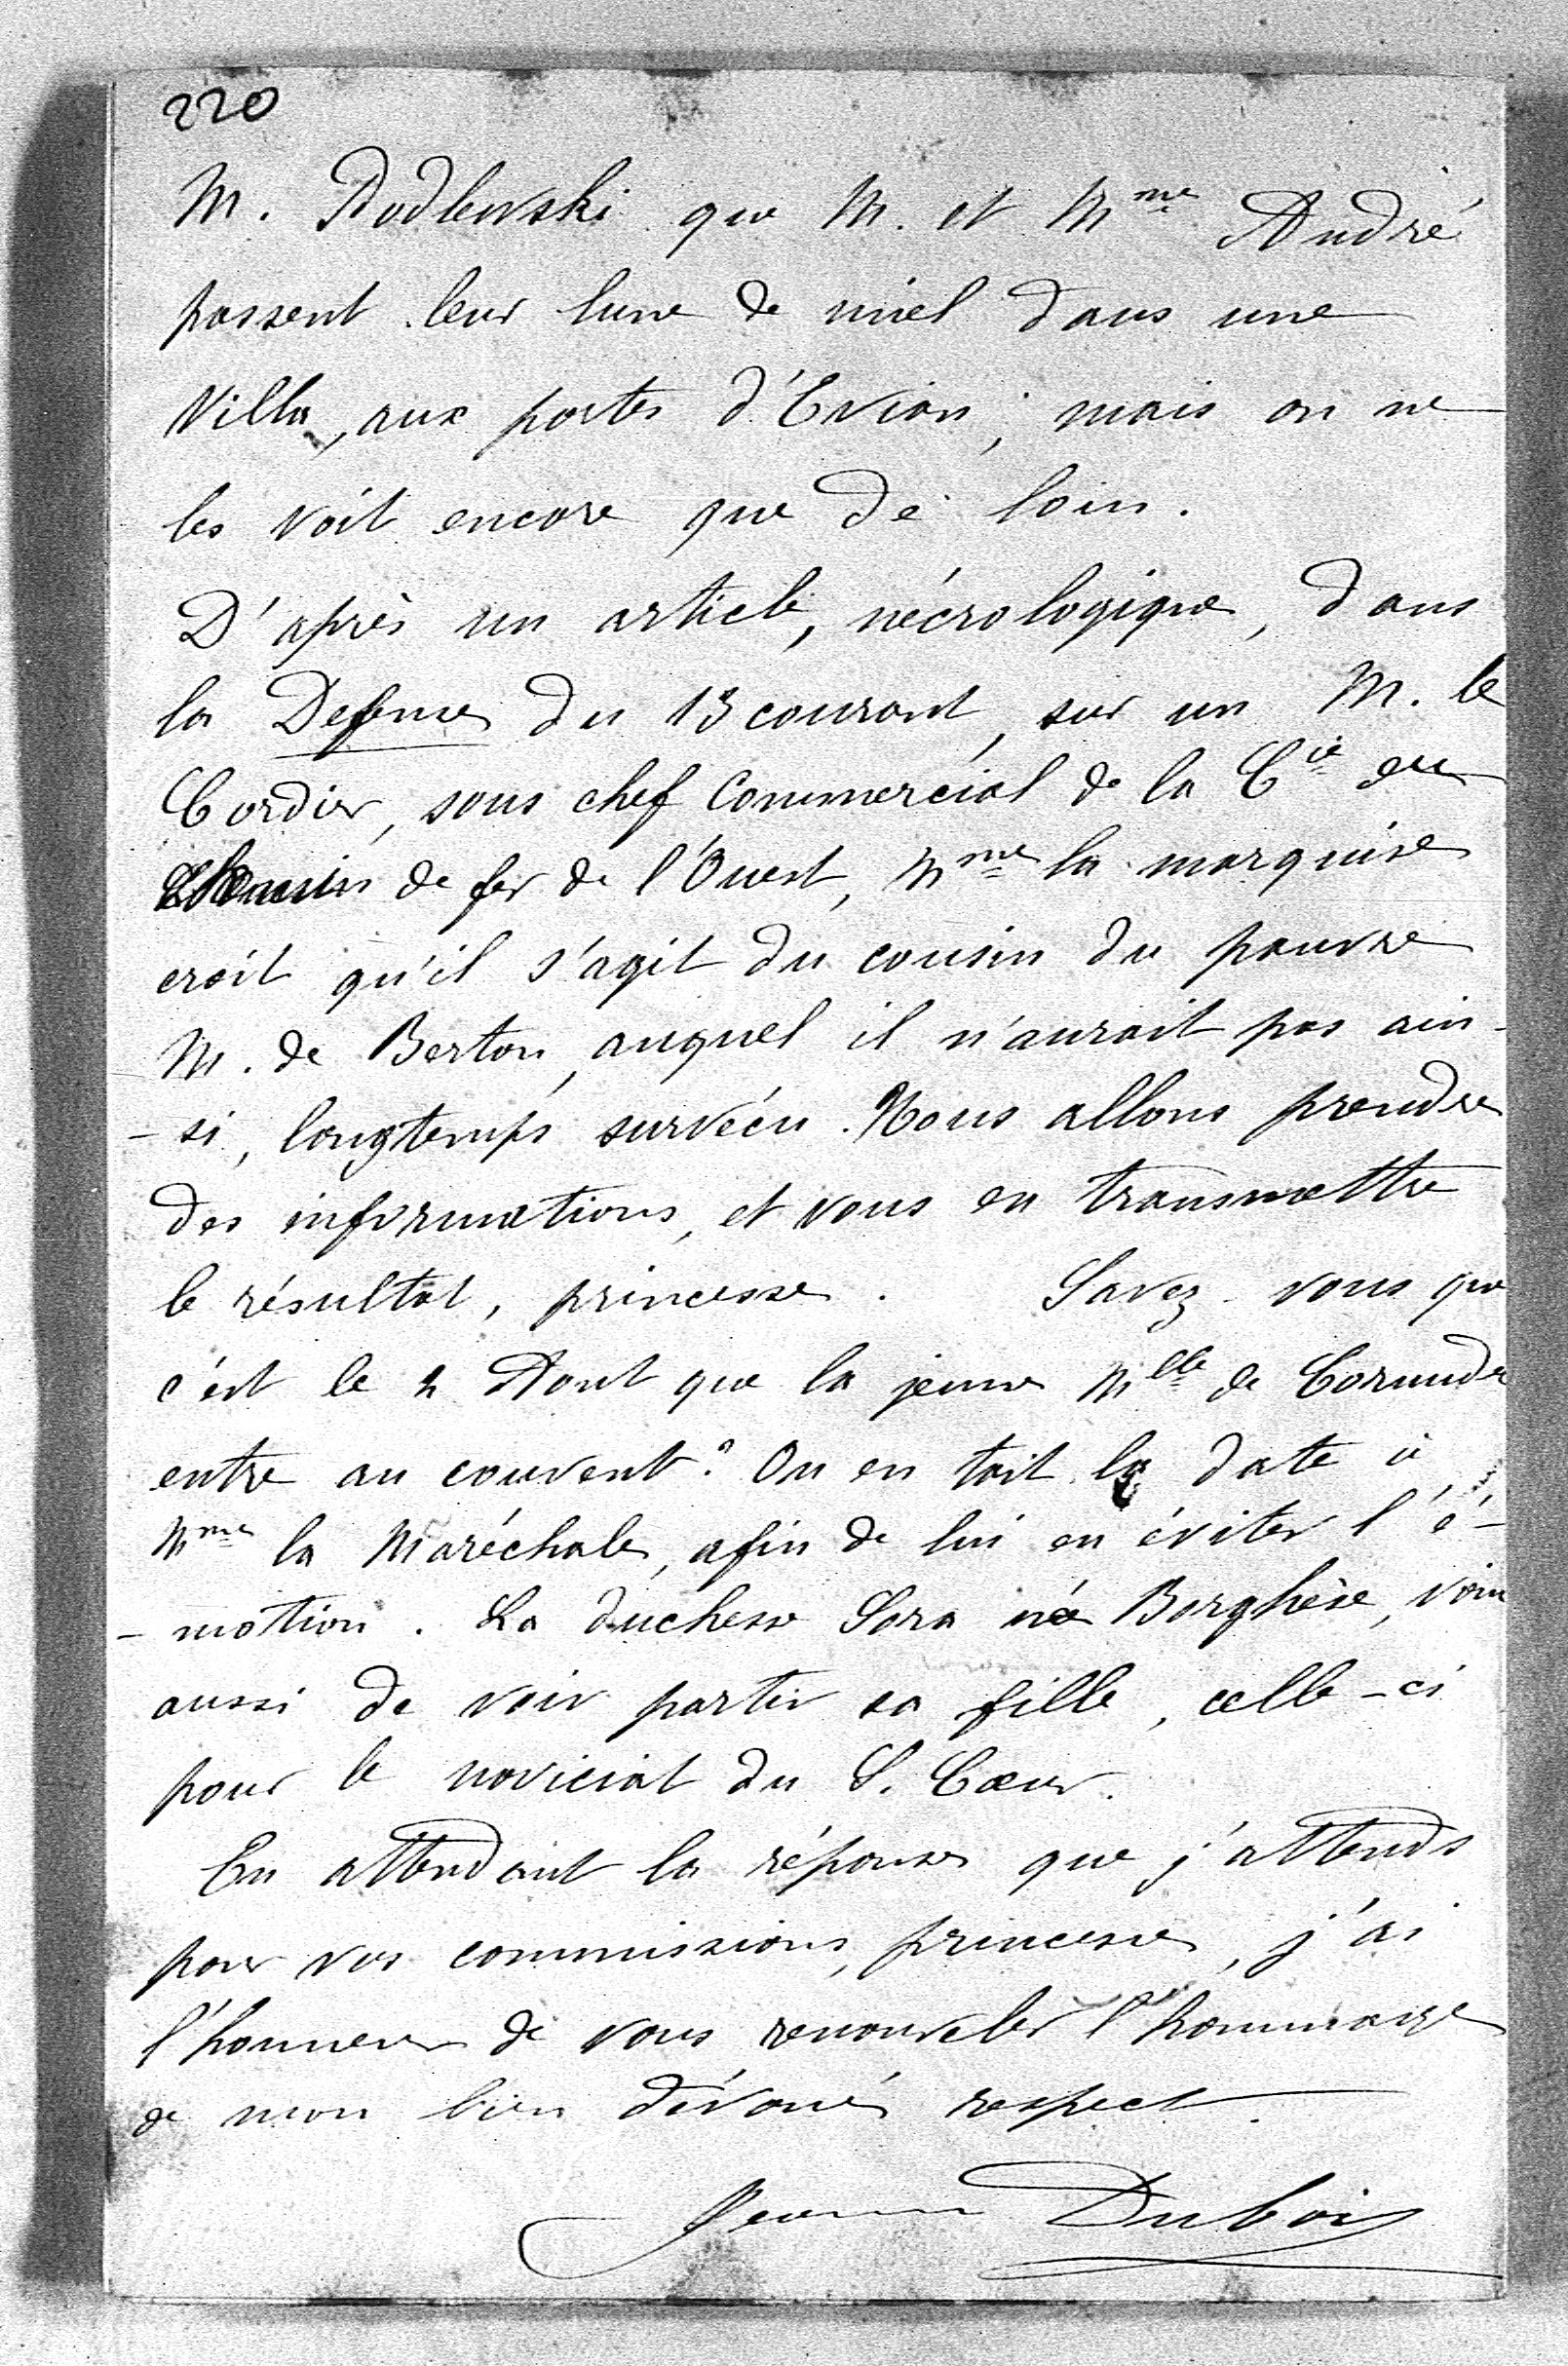 220
M. Podlewski que M. et Mme André
passent leur lune de miel dans une
Villa, aux portes d'Evian ; mais on ne
les voit encore que de loin.
D'après un article, nécrologique, dans
la Defense du 13 courant, sur un M. le
Cordier, sous chef Commercial de la Cie du
Chemin de fer de l'Ouest, Mme la marquise
croit qu'il s'agit du cousin du pauvre
M. de Berton, auquel il n'aurait pas ain-
- si, longtemps survécu. Nous allons prendre
des informations, et vous en transmettre
le résultat, princesse. Savez-vous que
c'est le 2 Aout que la jeune Mlle de
entre au couvent ? On en tait la date à
Mme la Maréchale, afin de lui en éviter l'é-
- motion. La duchesse Sora née Borghèse, vient
aussi de voir partir sa fille, celle-ci
pour le noviciat du S. Cœur.
En attendant la réponse que j'attends
pour vos commissions, princesse, j'ai
l'honneur de vous renouveler l'hommage
de mon bien dévoué respect.
Dubois